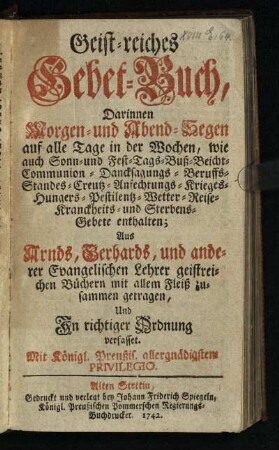 Geist-reiches
Gebet-Buch,
Darinnen
Morgen- und Abend-Segen
auf alle Tage in der Wochen, wie
auch Sonn- und Fest-Tags-Buß-Beicht-
Communion-Dancksagungs-Beruffs-
Standes-Creutz-Anfechtungs-Krieges-
Hungers-Pestilentz-Wetter-Reise-
Kranckheits- und Sterbens-
Gebete enthalten;
Aus
Arnds, Gerhards, und ande-
rer Evangelischen Lehrer geistrei-
chen Büchern mit allem Fleiß zu-
sammen getragen,
Und
In richtiger Ordnung
verfasset.
Mit Königl. Preußis. allergnädigstem
PRIVILEGIO.
Alten Stettin,
Gedruckt und verlegt bey Johann Friderich Spiegeln,
Königl. Preußischen Pommerschen Regierungs-
Buchdrucker. 1742.